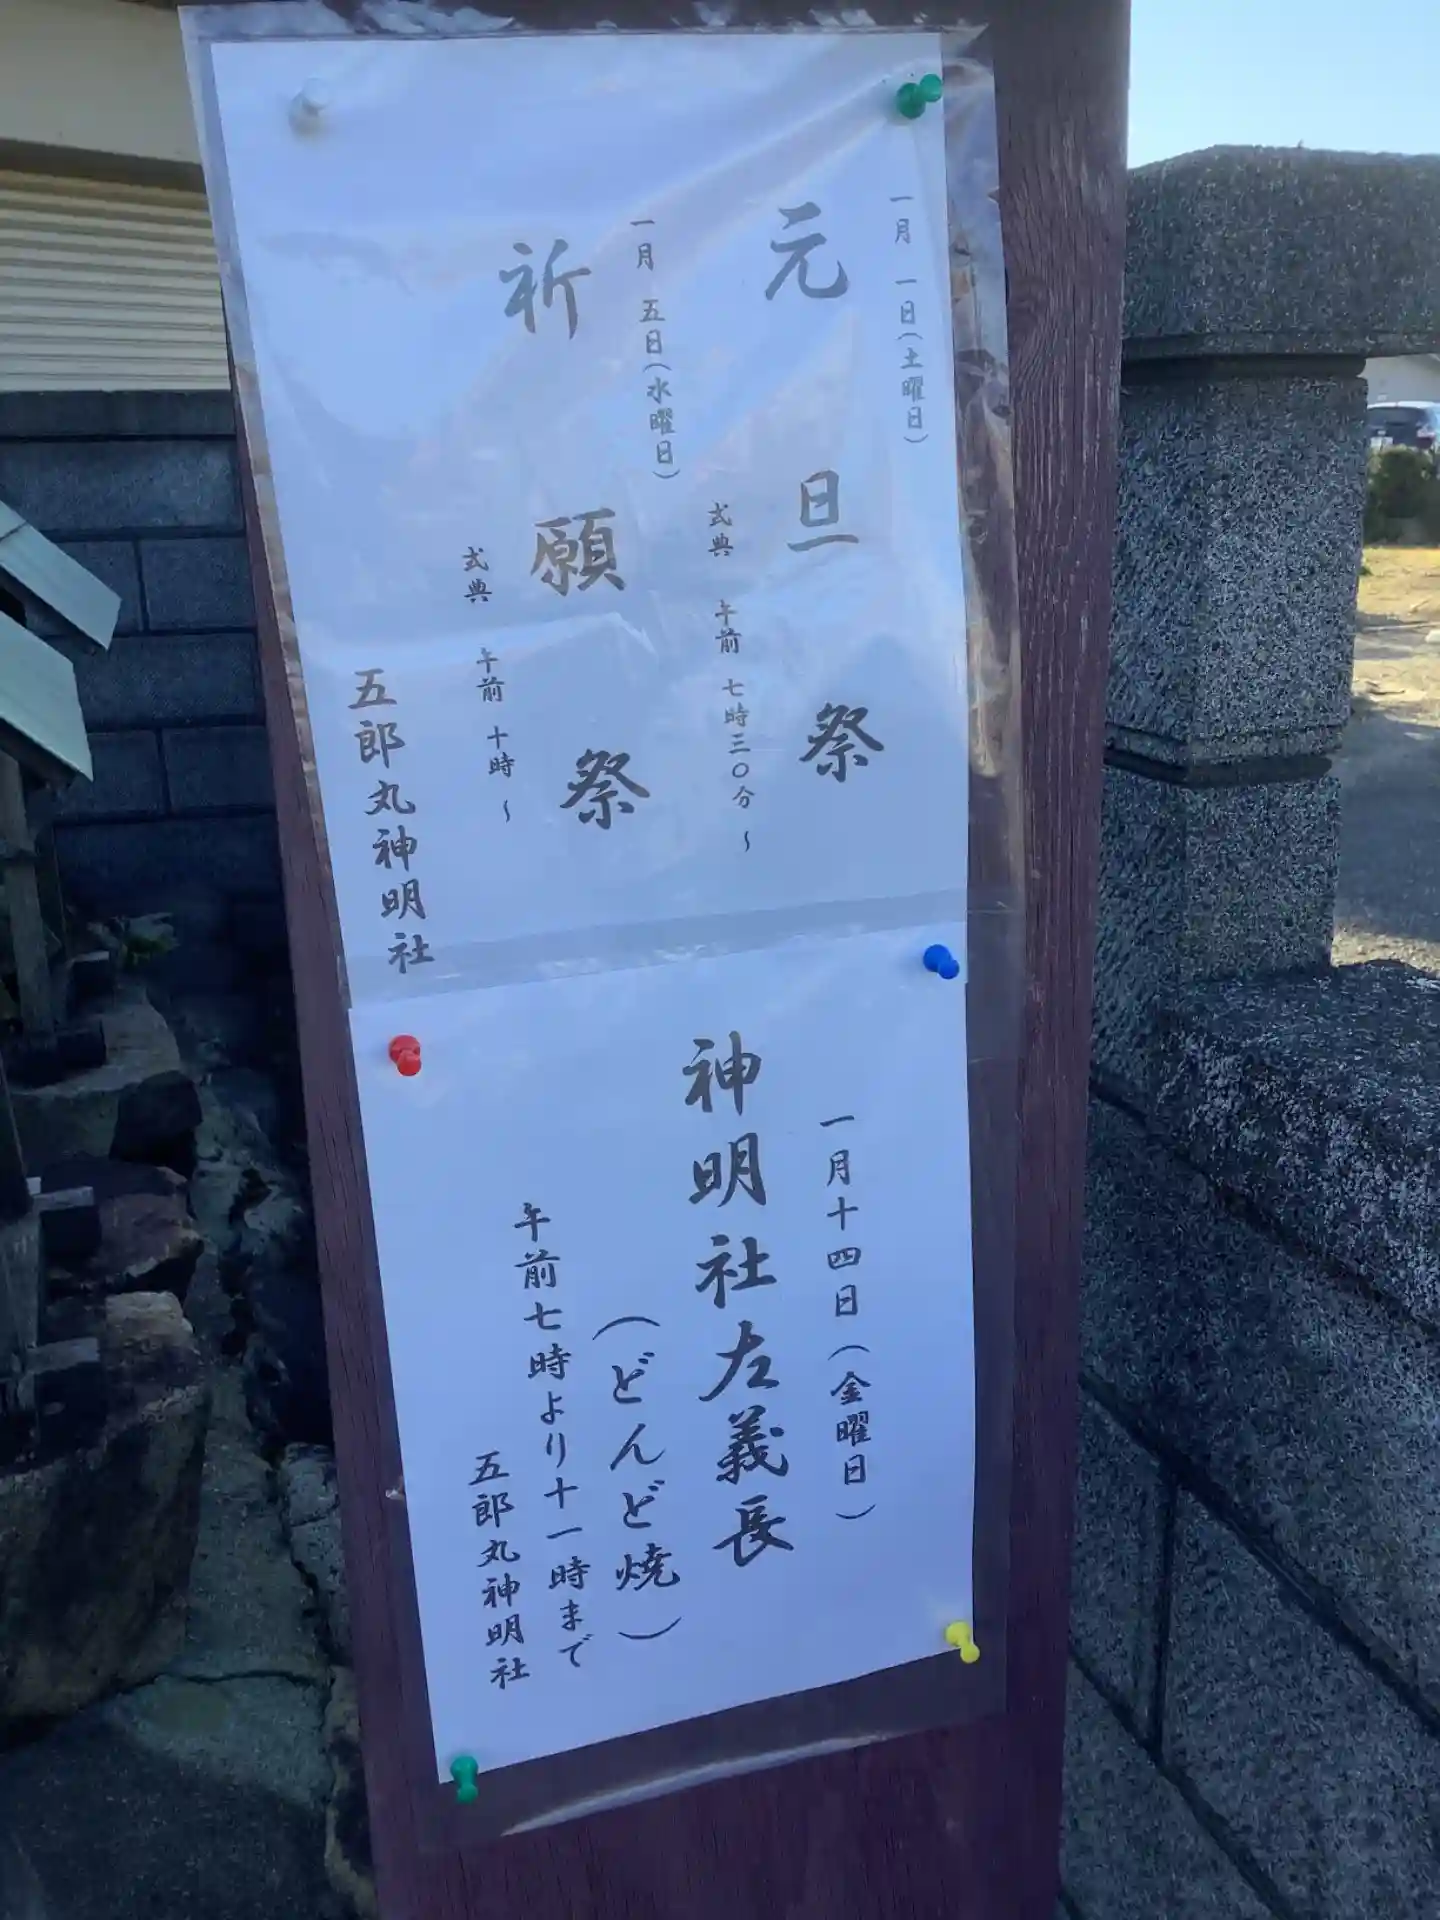 一月 一日（土曜日）
元旦祭
式典 午前 七時三〇分 ～
一月 五日（水曜日）
祈願祭
式典 午前 十時 ～
五郎丸神明社
一月十四日（金曜日）
神明社左義長
（どんど焼）
午前七時より十一時まで
五郎丸神明社